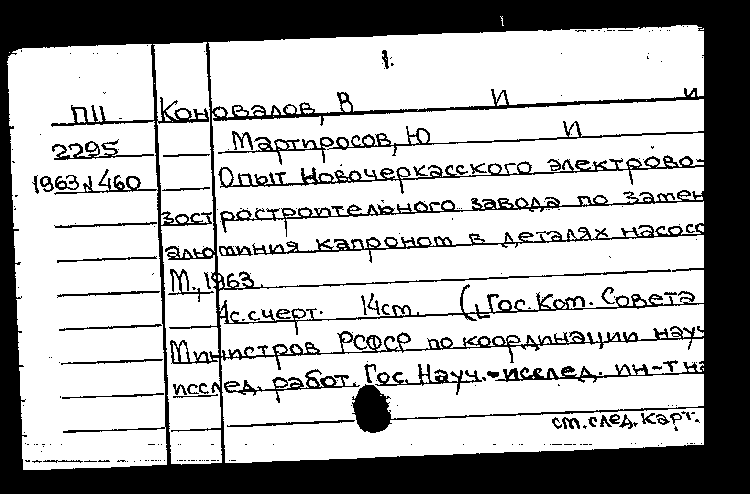 1.
П11 Коновалов, В И и
2295 Мартиросов, Ю И
1963 N 460 Опыт Новочеркасского электрово-
зостростроительного завода по замен
алюминия капроном в деталях насосо
М., 1963.
1с.счерт. 14см. (Гос. Ком. Совета
Министров РСФСР по координации науч
исслед. работ. Гос. Науч.-исслед. ин-т на
см. след. карт.